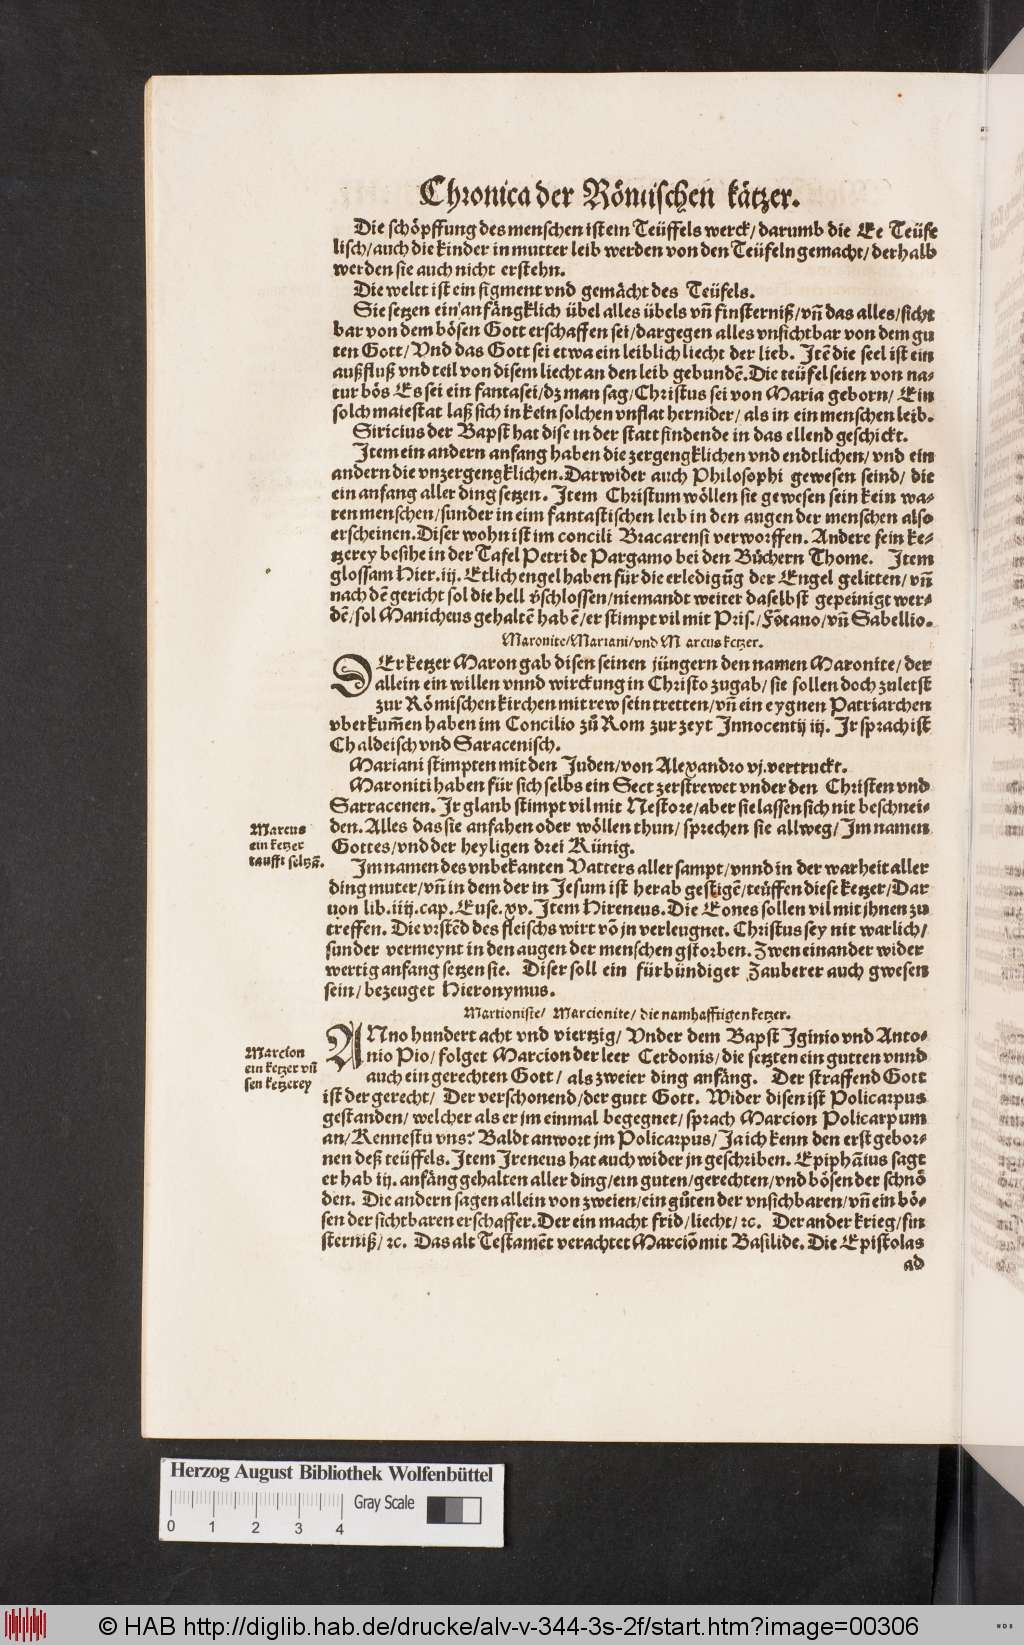 Chronica der Römischen kätzer.
Die schöpffung des menschen ist ein Teüffels werck/ darumb die Ee Teüfe
lisch/ auch die kinder in mutter leib werden von den Teüfeln gemacht/ derhalb
werden sie auch nicht erstehn.
Die weltt ist ein figment vnd gemächt des Teüfels.
Sie setzen ein anfängklich übel alles übels vñ finsterniß/ vñ das alles/ sicht
bar von dem bösen Gott erschaffen sei/ dargegen alles vnsichtbar von dem gu
ten Gott/ Vnd das Gott sei etwa ein leiblich liecht der lieb. Itē die seel ist ein
außfluß vnd teil von disem liecht an den leib gebundē. Die teüfel seien von na-
tur bös Es sei ein fantasei/ dz man sag/ Christus sei von Maria geborn/ Ein
solch maiestat laß sich in kein solchen vnflat hernider/ als in ein menschen leib.
Siricius der Bapst hat dise in der statt findende in das ellend geschickt.
Item ein andern anfang haben die zergengklichen vnd endtlichen/ vnd ein
andern die vnzergengklichen. Darwider auch Philosophi gewesen seind/ die
ein anfang aller ding setzen. Item Christum wöllen sie gewesen sein kein wa-
ren menschen/ sunder in eim fantastischen leib in den augen der menschen also
erscheinen. Diser wohn ist im concili Bracarensi verworffen. Andere sein ke-
tzerey besihe in der Tafel Petri de Pargamo bei den Büchern Thome. Item
glossam Hier. iij. Etlich engel haben für die erledigũg der Engel gelitten/ vñ
nach dē gericht sol die hell v̈schlossen/ niemandt weiter daselbst gepeinigt wer-
dē/ sol Manicheus gehaltē habē/ er stimpt vil mit Pris./ Fõtano/ vñ Sabellio.
Maronite/ Mariani/ vnd Marcus ketzer.
DEr ketzer Maron gab disen seinen jüngern den namen Maronite/ der
allein ein willen vnnd wirckung in Christo zugab/ sie sollen doch zuletst
zur Römischen kirchen mit rew sein tretten/ vñ ein eygnen Patriarchen
vberkum̄en haben im Concilio zů Rom zur zeyt Innocentij iij. Ir sprach ist
Chaldeisch vnd Saracenisch.
Mariani stimpten mit den Juden/ von Alexandro vj. vertruckt.
Maroniti haben für sich selbs ein Sect zerstrewet vnder den Christen vnd
Sarracenen. Ir glaub stimpt vil mit Nestore/ aber sie lassen sich nit beschnei-
den. Alles das sie anfahen oder wöllen thun/ sprechen sie allweg/ Im namen
Gottes/ vnd der heyligen drei Künig.
Marcus
ein ketzer
taufft seltzā.
Im namen des vnbekanten Vatters aller sampt/ vnnd in der warheit aller
ding muter/ vñ in dem der in Jesum ist herab gestigē/ teüffen diese ketzer/ Dar
uon lib. iiij. cap. Euse. xv. Item Hireneus. Die Eones sollen vil mit jhnen zu
treffen. Die vrstēd des fleischs wirt võ jn verleugnet. Christus sey nit warlich/
sunder vermeynt in den augen der menschen gstorben. Zwen einander wider
wertig anfang setzen sie. Diser soll ein fürbündiger Zauberer auch gwesen
sein/ bezeuget Hieronymus.
Martioniste/ Marcionite/ die namhafftigen ketzer.
Marcion
ein ketzer vñ
sen ketzerey
ANno hundert acht vnd viertzig/ Vnder dem Bapst Iginio vnd Anto-
nio Pio/ folget Marcion der leer Cerdonis/ die setzten ein gutten vnnd
auch ein gerechten Gott/ als zweier ding anfäng. Der straffend Gott
ist der gerecht/ Der verschonend/ der gutt Gott. Wider disen ist Policarpus
gestanden/ welcher als er jm einmal begegnet/ sprach Marcion Policarpum
an/ Kennestu vns? Baldt anwort jm Policarpus/ Ja ich kenn den erst gebor-
nen deß teüffels. Item Ireneus hat auch wider jn geschriben. Epiphāius sagt
er hab iij. anfäng gehalten aller ding/ ein guten/ gerechten/ vnd bösen der schnö
den. Die andern sagen allein von zweien/ ein gůten der vnsichbaren/ vñ ein bö-
sen der sichtbaren erschaffer. Der ein macht frid/ liecht/ ꝛc. Der ander krieg/ fin
sterniß/ ꝛc. Das alt Testamēt verachtet Marciõ mit Basilide. Die Epistolas
ad
Herzog August Bibliothek Wolfenbüttel
Gray Scale
0 1 2 3 4
© HAB http://diglib.hab.de/drucke/alv-v-344-3s-2f/start.htm?image=00306